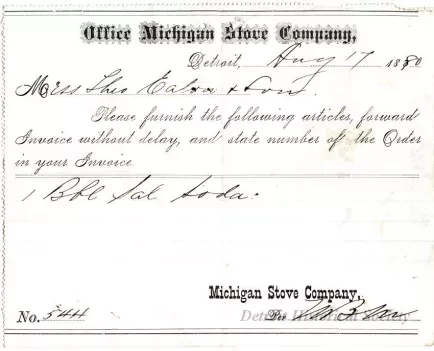 Office Michigan Stove Company,
Detroit, Aug 17 1880
Mess Theo Eaton & Son.
Please furnish the following articles, forward
Invoice without delay, and state number of the Order
in your Invoice.
1 Bbl Sal Soda.
Michigan Stove Company,
Detroit Historical Society
Per
No. 544